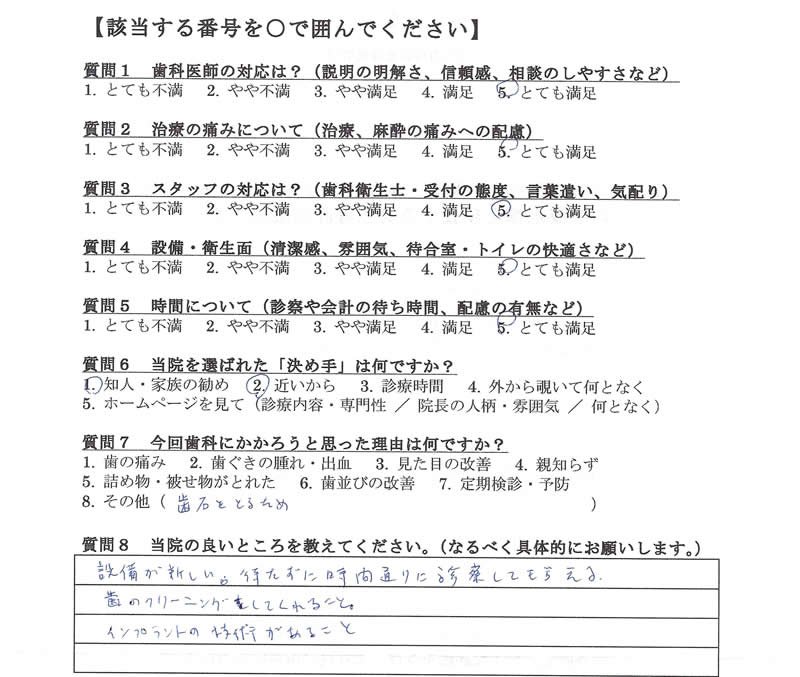 【該当する番号を〇で囲んでください】
質問1 歯科医師の対応は？（説明の明解さ、信頼感、相談のしやすさなど）
1. とても不満 2. やや不満 3. やや満足 4. 満足 5. とても満足
質問2 治療の痛みについて（治療、麻酔の痛みへの配慮）
1. とても不満 2. やや不満 3. やや満足 4. 満足 5. とても満足
質問3 スタッフの対応は？（歯科衛生士・受付の態度、言葉遣い、気配り）
1. とても不満 2. やや不満 3. やや満足 4. 満足 5. とても満足
質問4 設備・衛生面（清潔感、雰囲気、待合室・トイレの快適さなど）
1. とても不満 2. やや不満 3. やや満足 4. 満足 5. とても満足
質問5 時間について（診察や会計の待ち時間、配慮の有無など）
1. とても不満 2. やや不満 3. やや満足 4. 満足 5. とても満足
質問6 当院を選ばれた「決め手」は何ですか？
1. 知人・家族の勧め 2. 近いから 3. 診療時間 4. 外から覗いて何となく
5. ホームページを見て（診療内容・専門性 ／ 院長の人柄・雰囲気 ／ 何となく）
質問7 今回歯科にかかろうと思った理由は何ですか？
1. 歯の痛み 2. 歯ぐきの腫れ・出血 3. 見た目の改善 4. 親知らず
5. 詰め物・被せ物がとれた 6. 歯並びの改善 7. 定期検診・予防
8. その他（ 歯石をとるため ）
質問8 当院の良いところを教えてください。（なるべく具体的にお願いします。）
設備が新しい。待たずに時間通りに診察してもらえる.
歯のクリーニングをしてくれること。
インプラントの技術があること